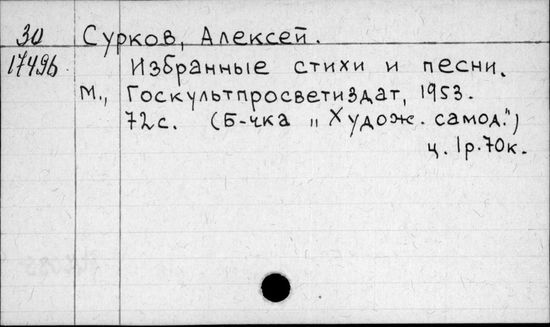 30 Сурков, Алексей.
17496 Избранные стихи и песни.
М., Госкультпросветиздат, 1953.
72с. (Б-чка „Худож. самод.")
ц. 1р.70к.